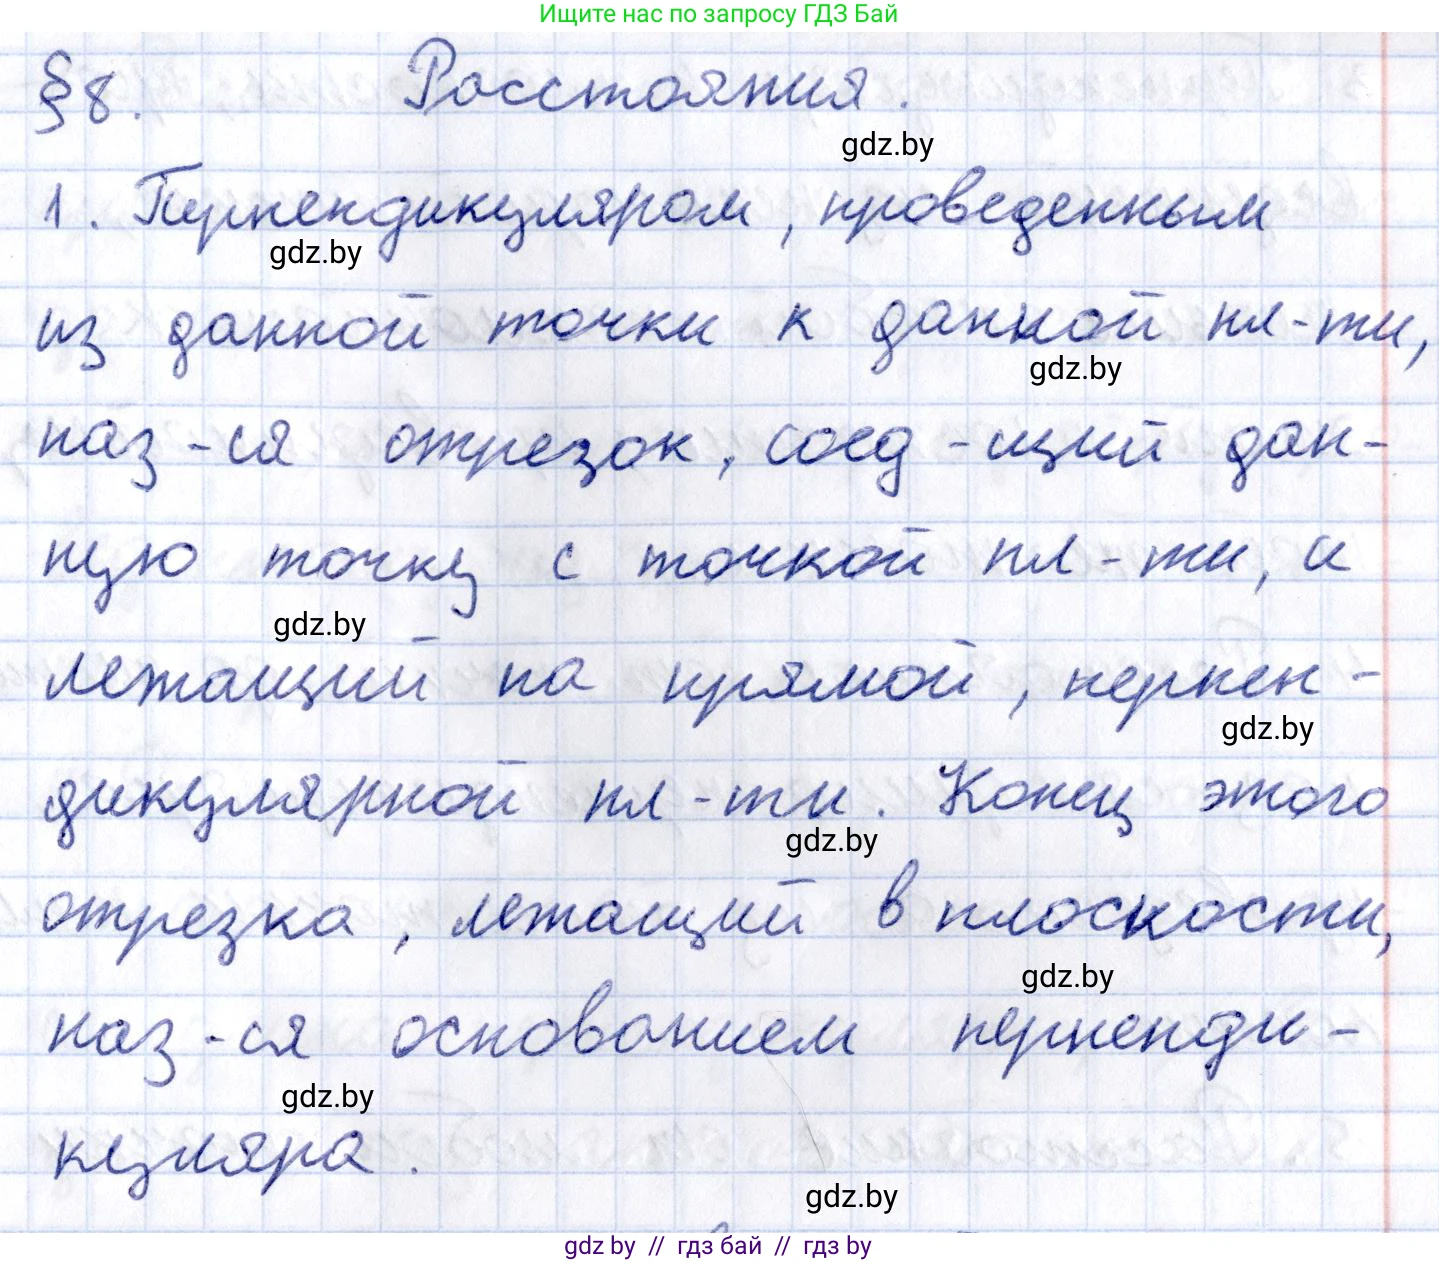 Ищите нас по запросу ГДЗ Бай
§8. Расстояния.
gdz.by
1. Перпендикуляром, проведенным
gdz.by
из данной точки к данной пл-ти,
gdz.by
наз-ся отрезок, соед-щий дан-
ную точку с точкой пл-ти, и
gdz.by
лежащий на прямой, перпен-
gdz.by
дикулярной пл-ти. Конец этого
gdz.by
отрезка, лежащий в плоскости,
gdz.by
наз-ся основанием перпенди-
gdz.by
куляра.
gdz.by
gdz by // гдз бай // гдз by